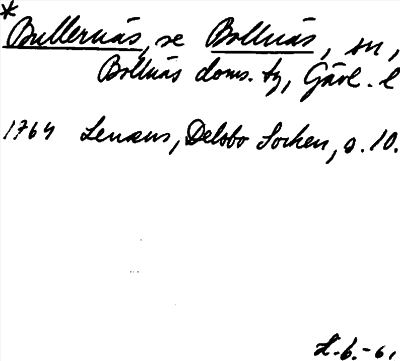 *
Bullernäs, se Bollnäs, sn,
Bollnäs doms. tg, Gävl. l
1764 Lenæus, Delsbo Socken, s. 10.
L. 6. - 61